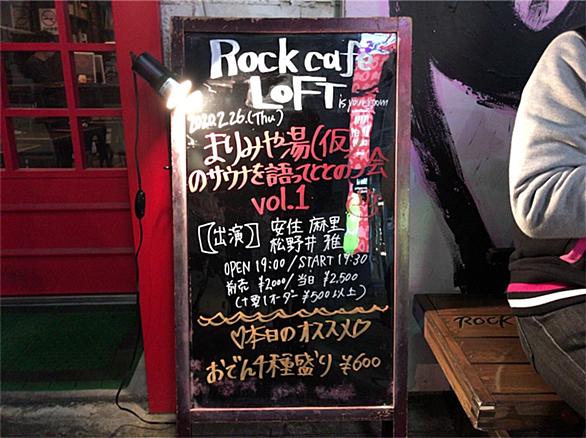 Rock cafe
LOFT
is your room
2020.2.26.(Thu)
まりみや湯(仮)
のサウナを語ってととのう会
vol.1
【出演】 安住 麻里
松野井 雅
OPEN 19:00 / START 19:30
前売 ¥2000 / 当日 ¥2,500
(+要1オーダー ¥500以上)
♡本日のオススメ♡
おでん4種盛り ¥600
ROCK